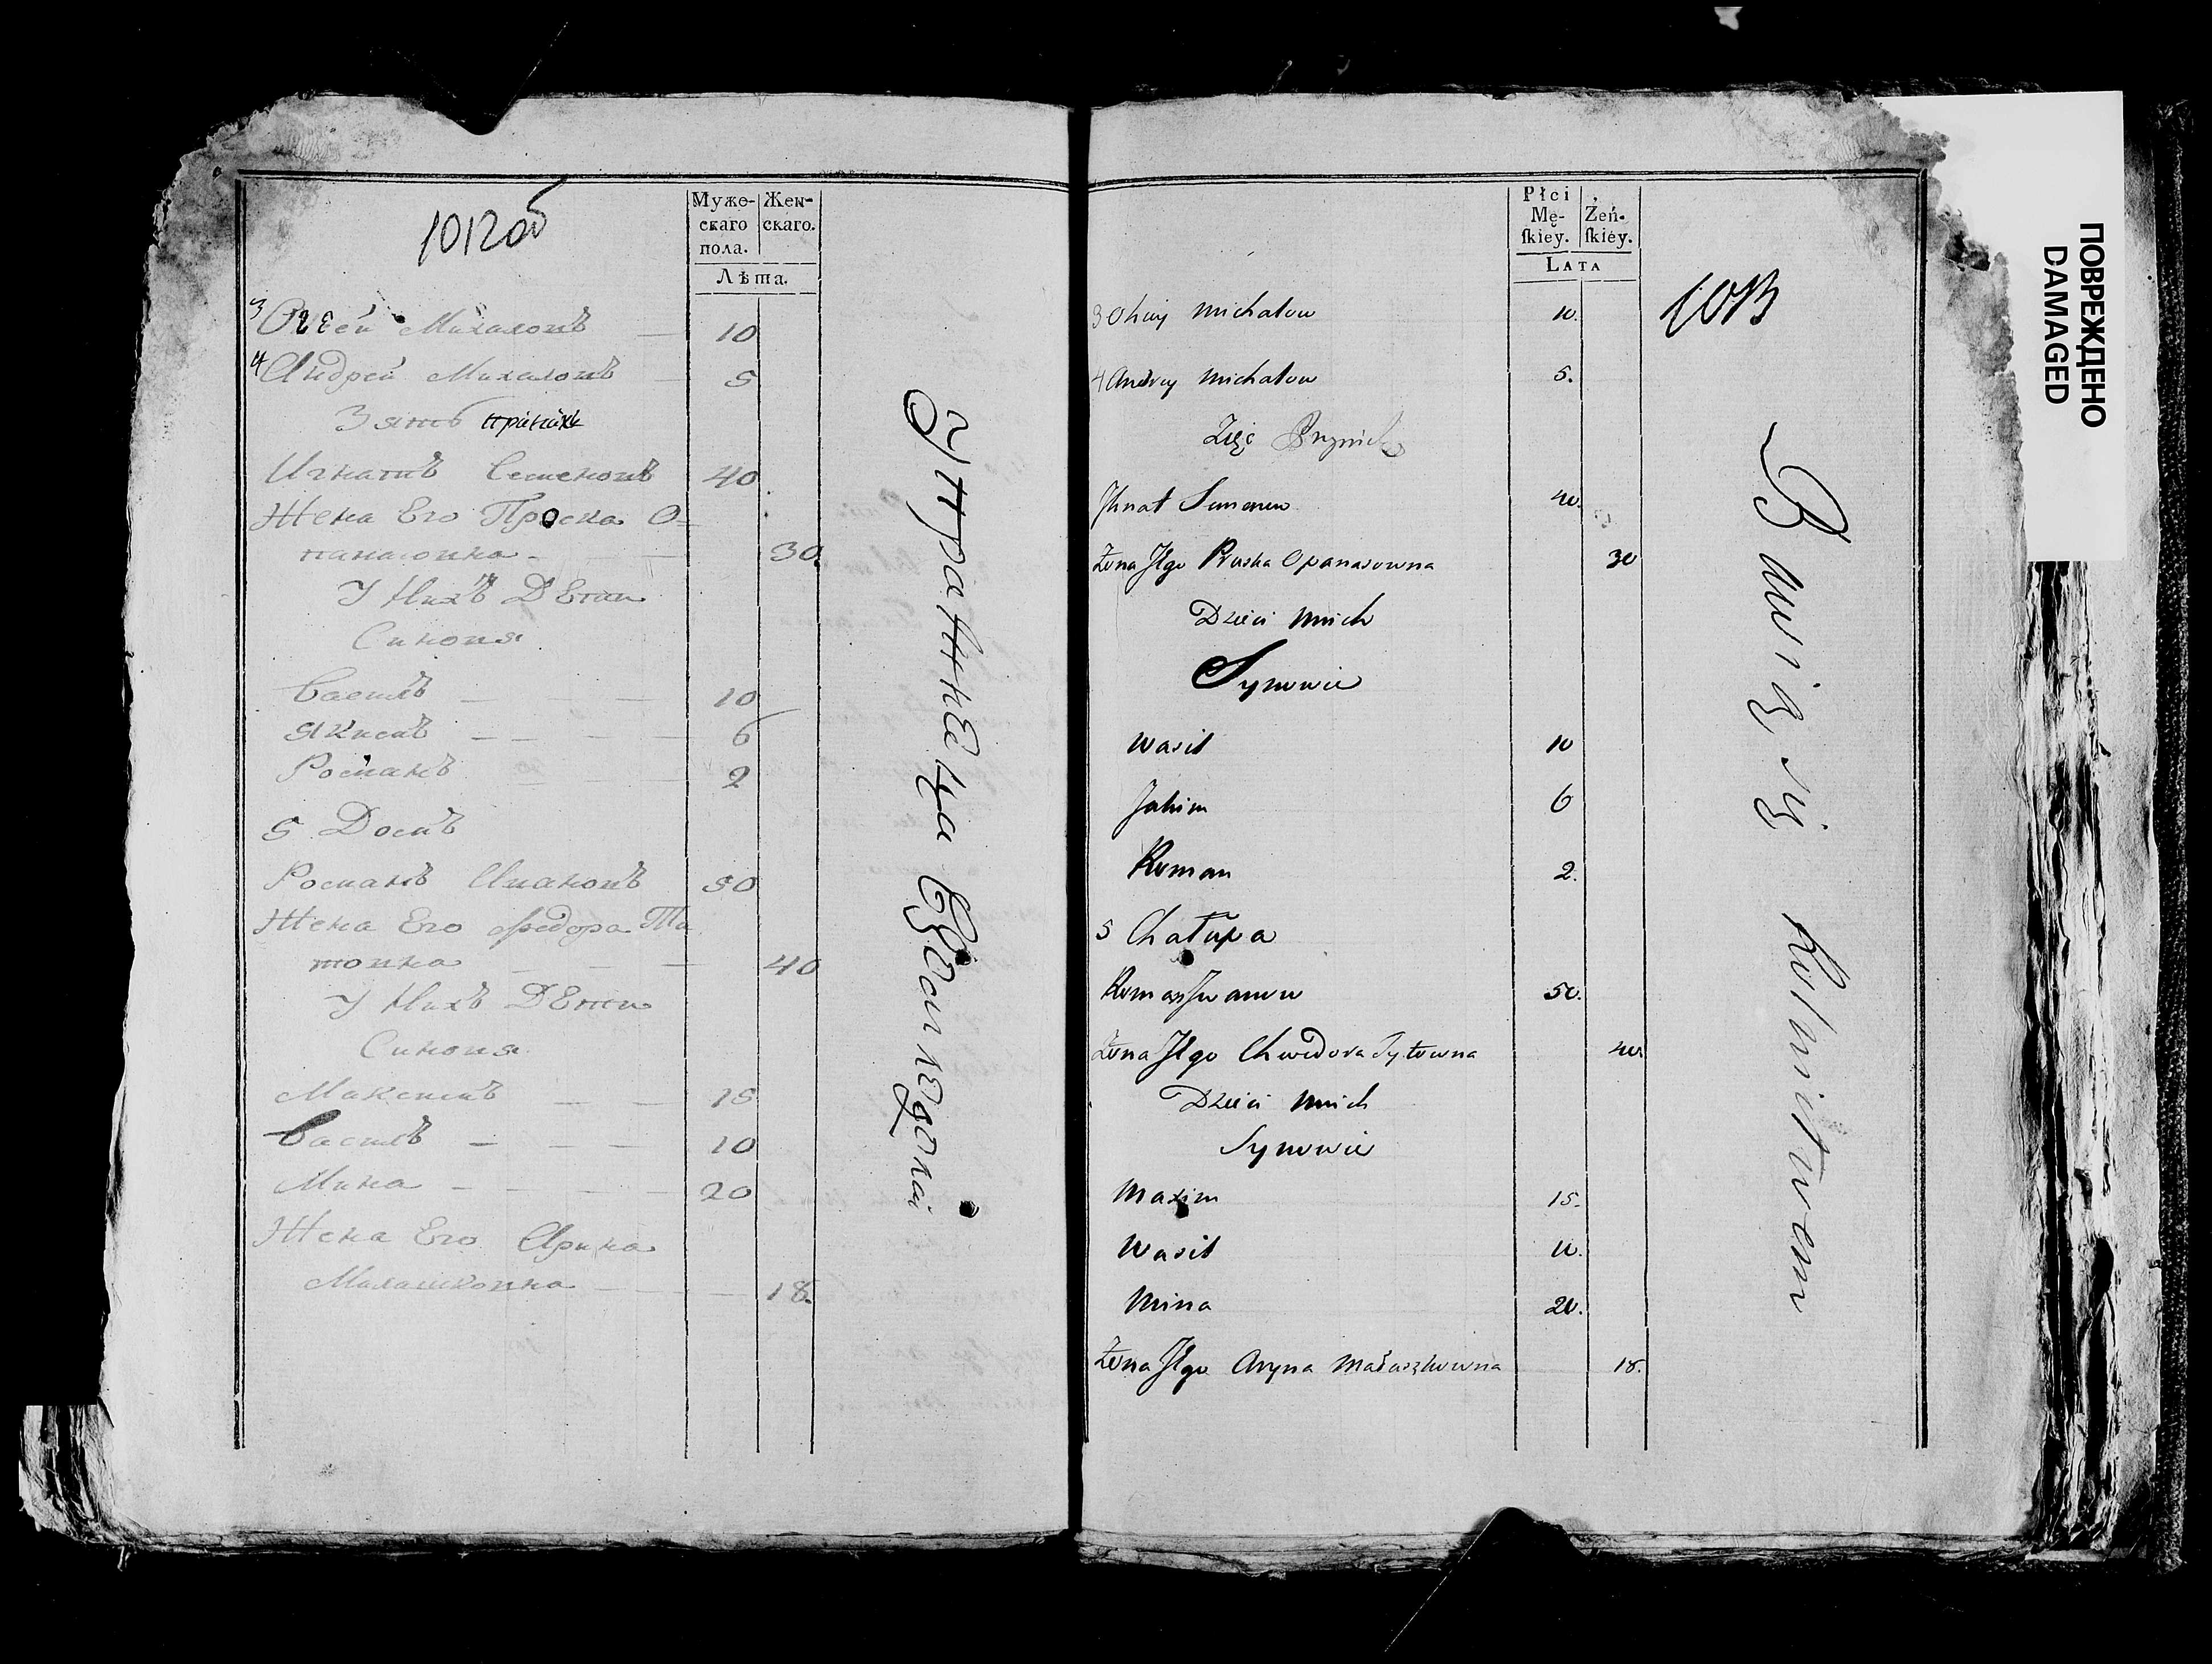 1012 об
Муже-
скаго
пола.
Жен-
скаго.
Лѣта.
3 Огѣй Михаловъ 10
4 Андрей Михаловъ 5
Зять
Игнатъ Семеновъ 40
Жена Его Проска О-
панасовна 30.
У Нихъ Дети
Синовя
Василъ 10
Якимъ 6
Романъ 2
5 Домъ
Романъ Ивановъ 50
Жена Его Федора Ти
товна 40
У Нихъ Дети
Синовя
Максимъ 15
Василъ 10
Мина 20
Жена Его Арина
Малашковна 18.
Płci
Mę-
ſkiey.
Żeń-
ſkiéy.
LATA
1013
3 Ohiy Michałow 10.
4 Andrey Michałow 5.
Zięć
Jhnat Semenow 40.
Żona Jego Proska Opanasowna 30
Dzieci Unich
Synowie
Wasil 10
Jahim 6
Roman 2.
5 Chałupa
Roman Jwanow 50.
Żona Jego Chwedora Tytowna 40
Dzieci Unich
Synowie
Maxim 15.
Wasil 10.
Mina 20.
Żona Jego Aryna Małaszkowna 18.
ПОВРЕЖДЕНО
DAMAGED